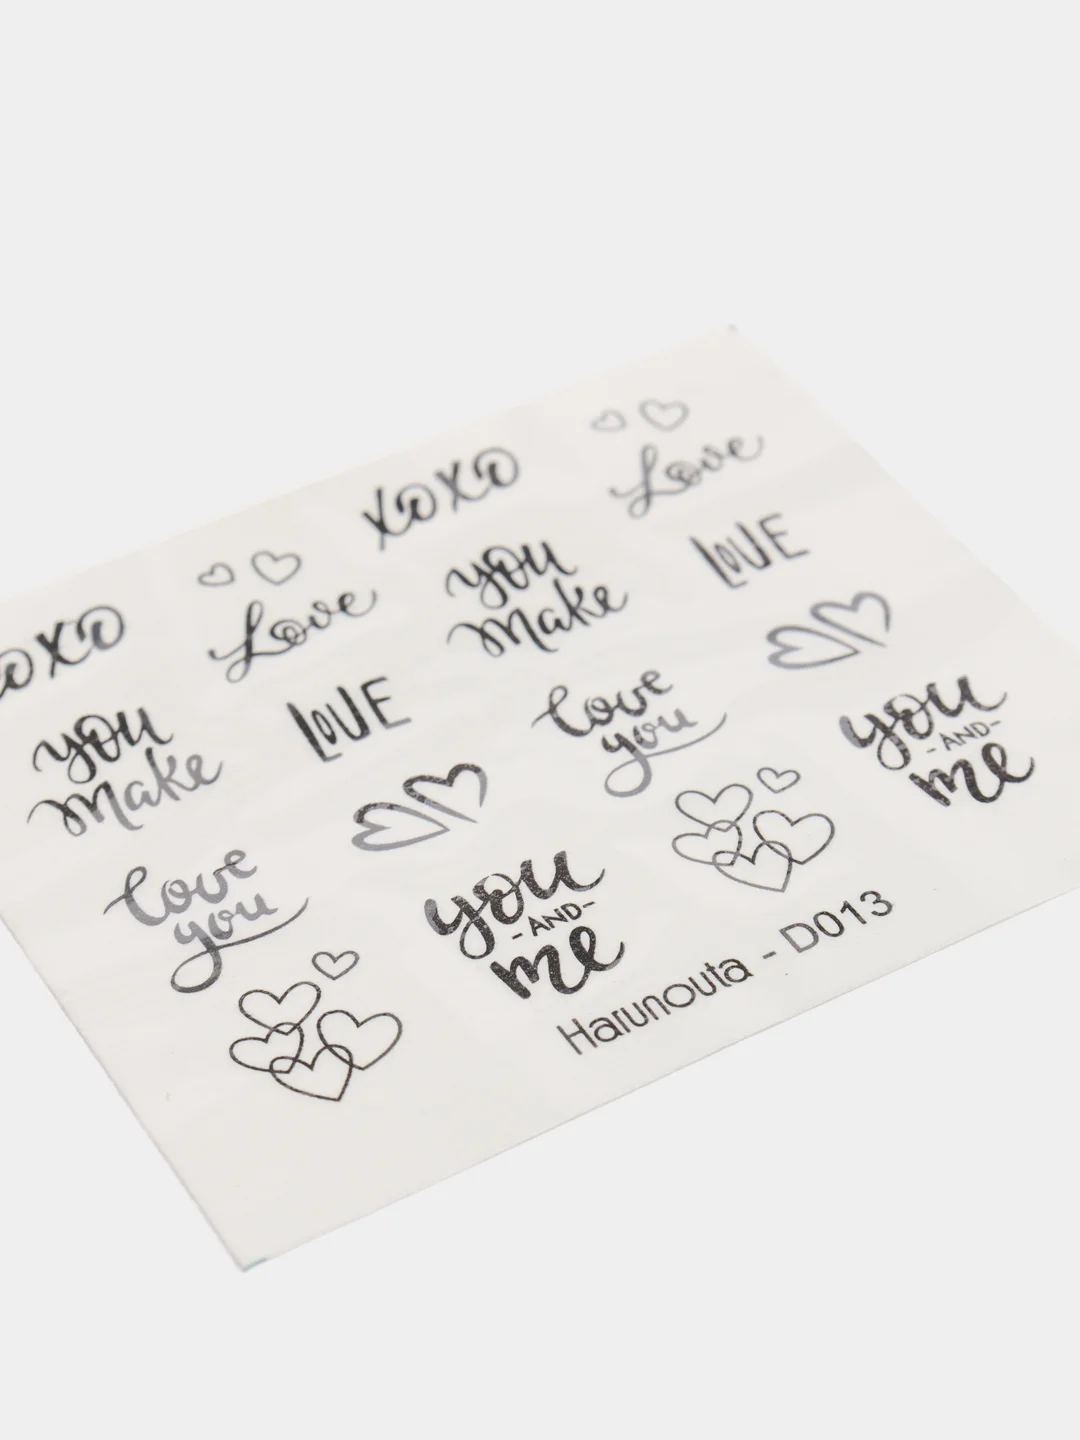 XOXO
Love
XOXO
Love
you
Make
LOVE
you
Make
LOVE
love
you
you
-AND-
me
love
you
you
-AND-
me
Harunouta - D013